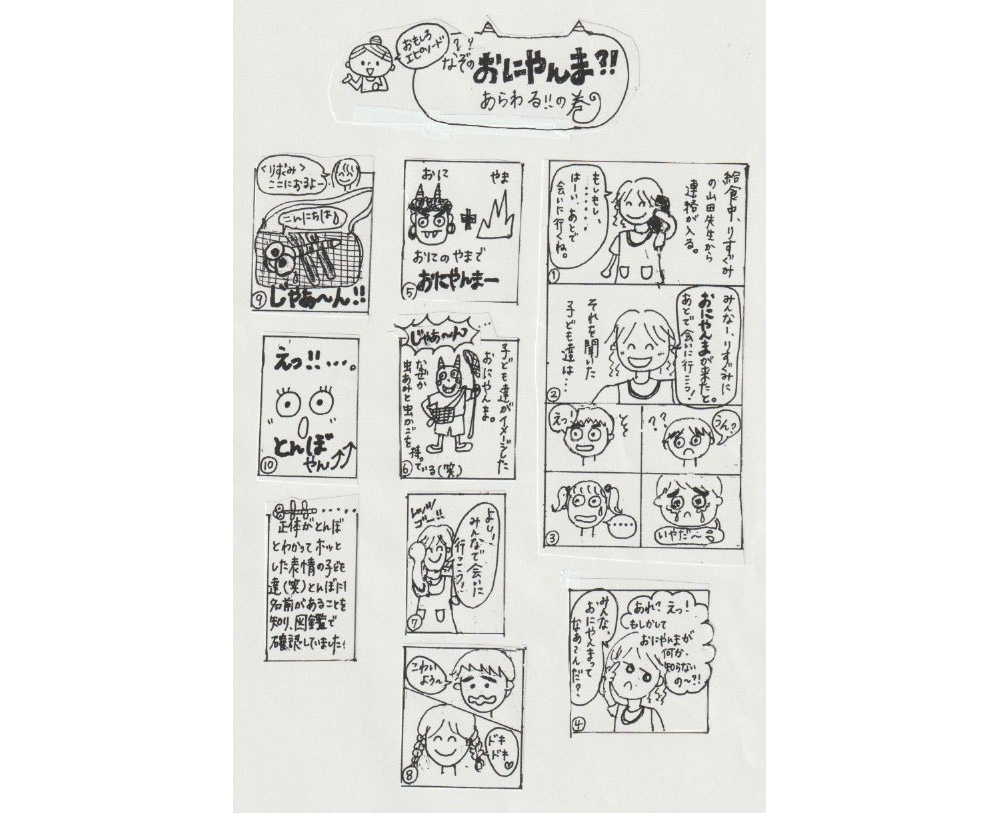 おもしろ
エピソード
なぞの
おにやんま?!
あらわる!!の巻
給食中、りすぐみ
の山田先生から
連絡が入る。
もしもし、
・・・・・・・
はーい、あとで
会いに行くね。
①
みんなー、りすぐみに
おにやんまが来たと。
あとで会いに行こう!
それを聞いた
子ども達は…
②
うん?
??
えっ!
いやだ〜
・・・・
③
あれ?えっ!
もしかして
おにやんまが
何か、
知らない
の〜?!
みんな、
おにやんまって
なあ〜んだ?
④
おに
やま
おにのやまで
おにやんまー
⑤
じゃあ〜ん
子ども達がイメージした
おにやんま。
なぜか
虫あみと虫かごを
持っている(笑)
⑥
よし!、
みんなで会いに
行こう!
レッツ
ゴー!!
⑦
こわい
よう〜
ドキ
ドキ
⑧
<りすぐみ>
ここにおるよー
こんにちは
じゃあ〜ん!!
⑨
えっ!!…。
とんぼ
やん
⑩
正体がとんぼ
とわかってホッと
した表情の子ども
達(笑)とんぼにも
名前があることを
知り、図鑑で
確認していました!